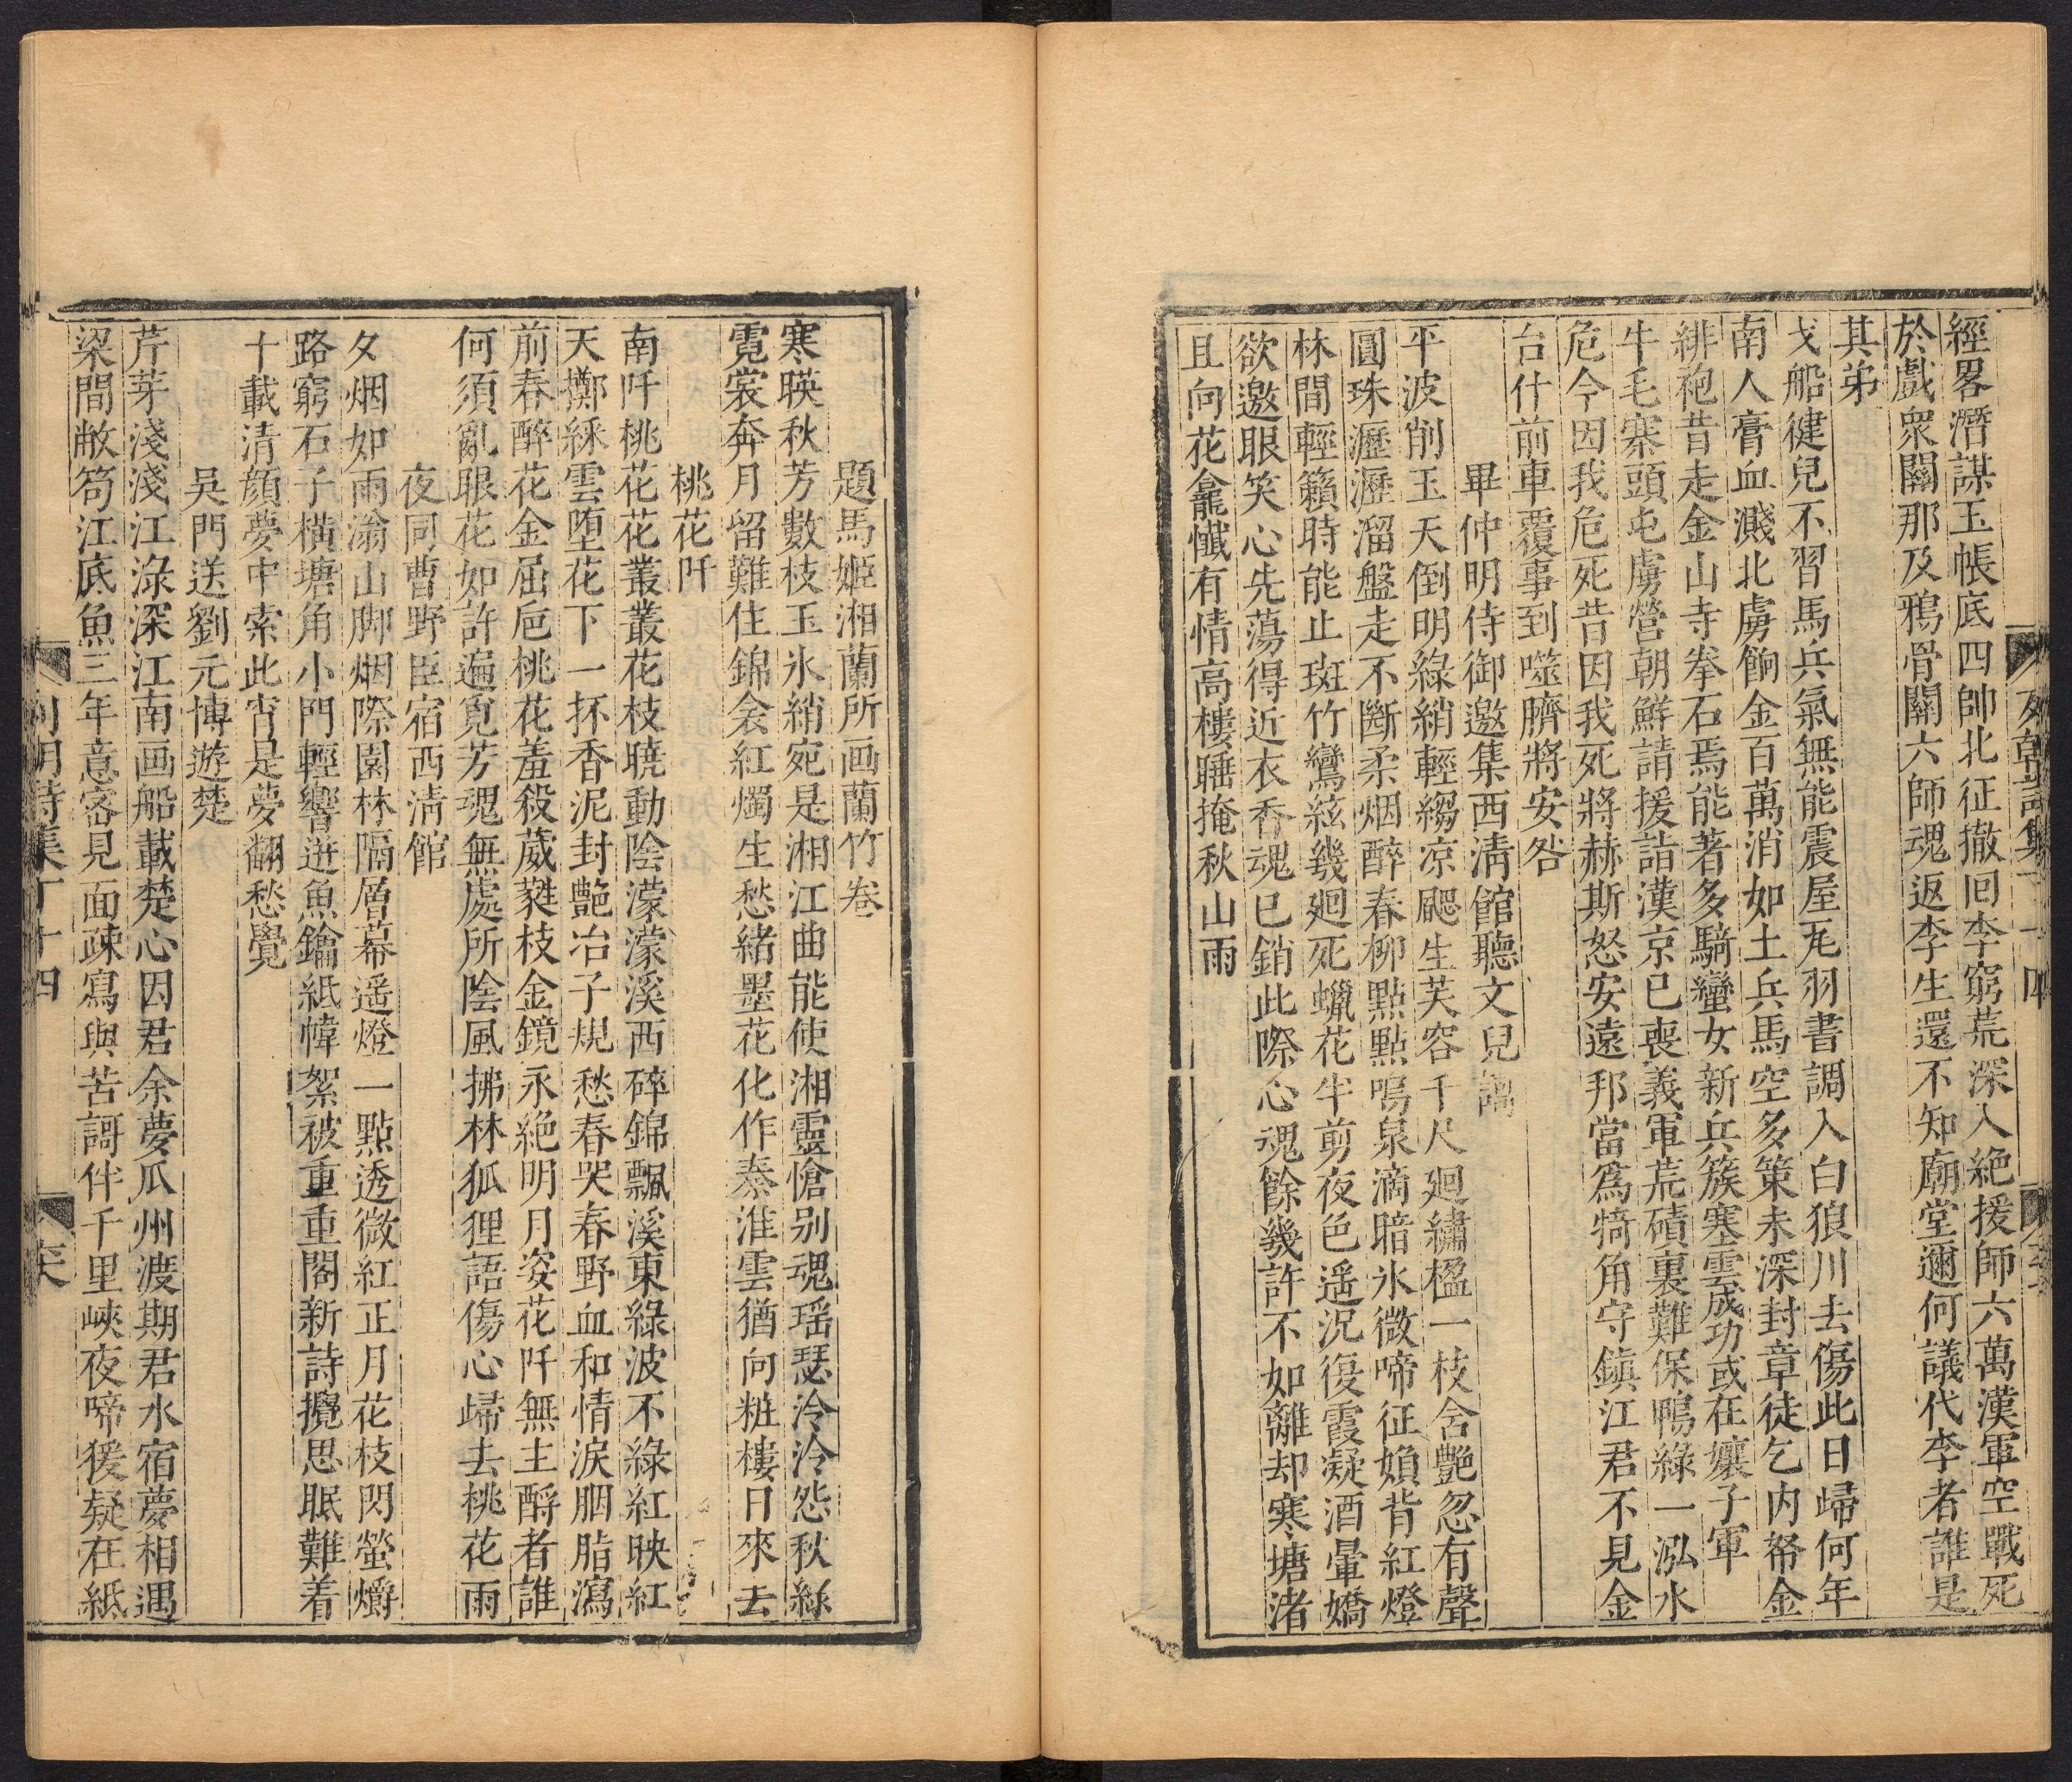 經畧潛謀玉帳底四帥北征撤回李窮荒深入絕援師六萬漢軍空戰死
於戲衆關那及鴉骨關六師魂返李生還不知廟堂邇何議代李者誰是
其弟
戈船健兒不習馬兵氣無能震屋瓦羽書調入白狼川去傷此日歸何年
南人膏血濺北虜餉金百萬消如土兵馬空多策未深封章徒乞内帑金
緋袍昔走金山寺拳石焉能著多騎蠻女新兵簇塞雲成功或在孃子軍
牛毛寨頭屯虜營朝鮮請援詣漢京已喪義軍荒磧裏難保鴨綠一泓水
危今因我危死昔因我死將赫斯怒安遠邦當爲犄角守鎮江君不見金
台什前車覆事到噬臍將安咎
畢仲明侍御邀集西清館聽文兒謳
平波削玉天倒明綠綃輕縐凉颸生芙容千尺廻繡楹一枝含艷忽有聲
圓珠瀝瀝溜盤走不斷柔烟醉春柳點點鳴泉滴暗氷微啼征頻背紅燈
林間輕籟時能止斑竹鸞絃幾廻死蠟花半剪夜色遥況復霞凝酒暈嬌
欲邀眼笑心先蕩得近衣香魂已銷此際心魂餘幾許不如離却寒塘渚
且向花龕懺有情高樓睡掩秋山雨
列朝詩集丁十四
題馬姬湘蘭所画蘭竹卷
寒暎秋芳數枝玉氷綃宛是湘江曲能使湘靈愴别魂瑶瑟泠泠怨秋絲
霓裳奔月留難住錦衾紅燭生愁緒墨花化作秦淮雲猶向粧樓日來去
桃花阡
南阡桃花花叢叢花枝曉動陰濛濛溪西碎錦飄溪東綠波不綠紅映紅
天擲綵雲墮花下一抔香泥封艷冶子規愁春哭春野血和情淚胭脂瀉
前春醉花金屈巵桃花羞殺葳蕤枝金鏡永絕明月姿花阡無主酹者誰
何須亂眼花如許遍覓芳魂無處所陰風拂林狐狸語傷心歸去桃花雨
夜同曹野臣宿西清館
夕烟如雨滃山脚烟際園林隔層幕遥燈一點透微紅正月花枝閃螢爝
路窮石子横塘角小門輕響逬魚鑰紙幃絮被重重閣新詩攪思眠難着
十載清顔夢中索此宵是夢翻愁覺
吳門送劉元博遊楚
芹芽淺淺江淥深江南画船載楚心因君余夢瓜州渡期君水宿夢相遇
梁間敝笱江底魚三年意客見面疎寫與苦謌伴千里峽夜啼猨疑在紙
列朝詩集丁十四